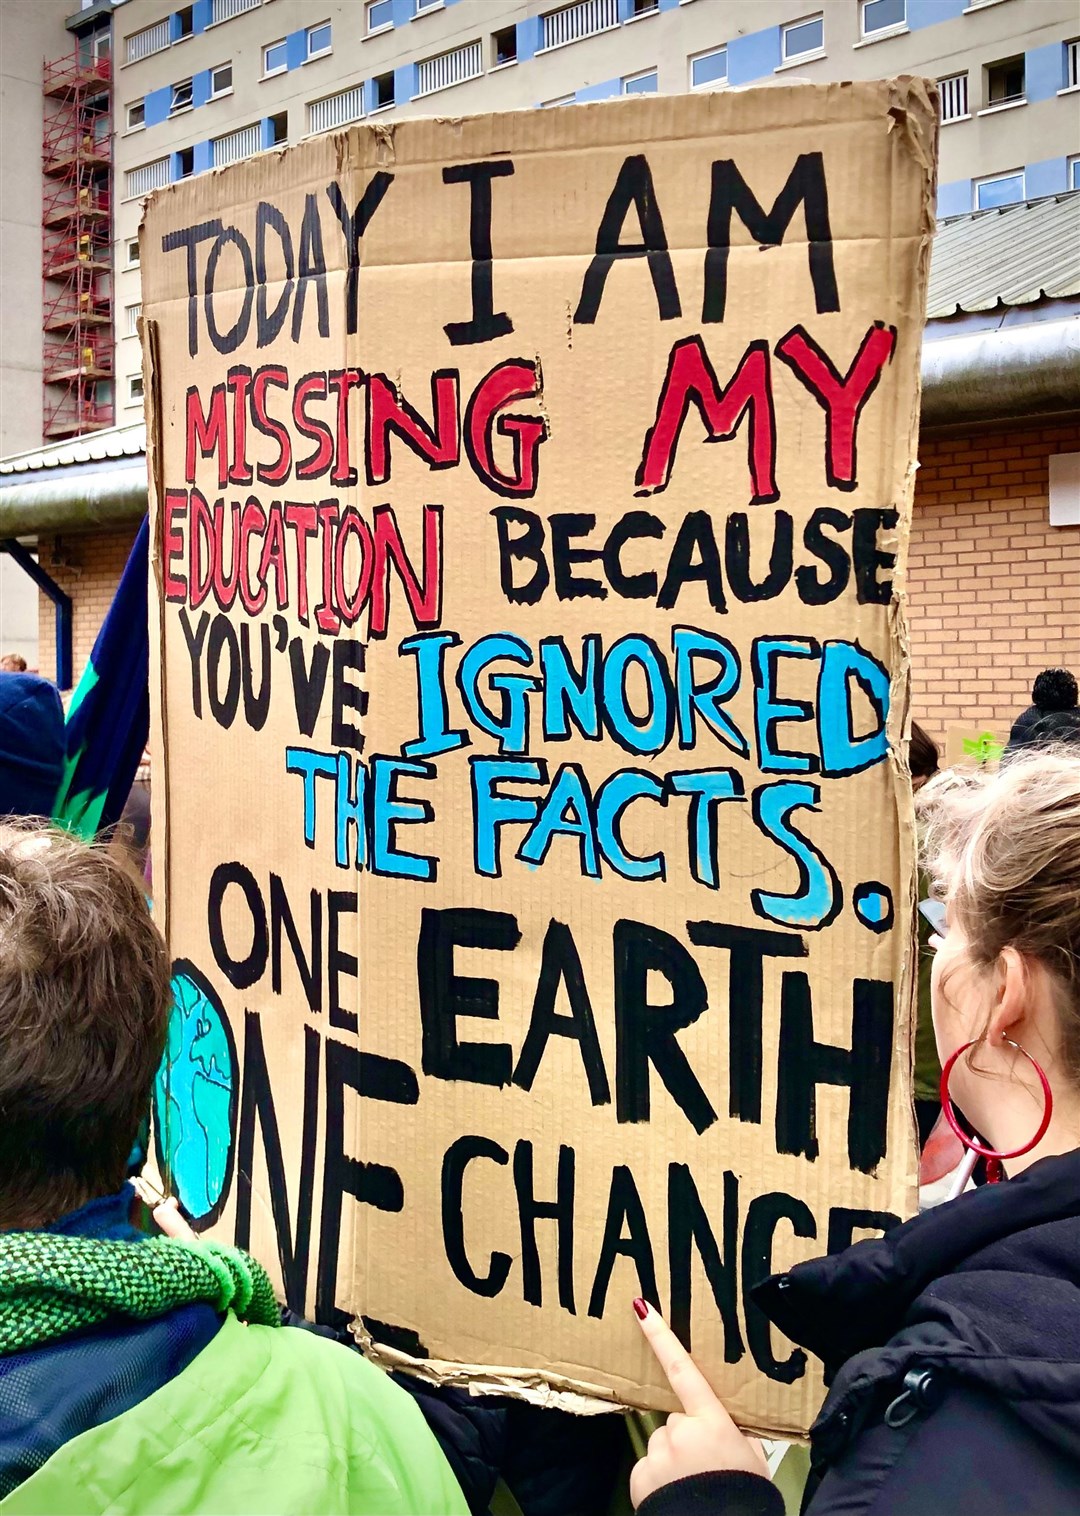 TODAY I AM
MISSING MY
EDUCATION BECAUSE
YOU'VE IGNORED
THE FACTS.
ONE EARTH
ONE CHANCE